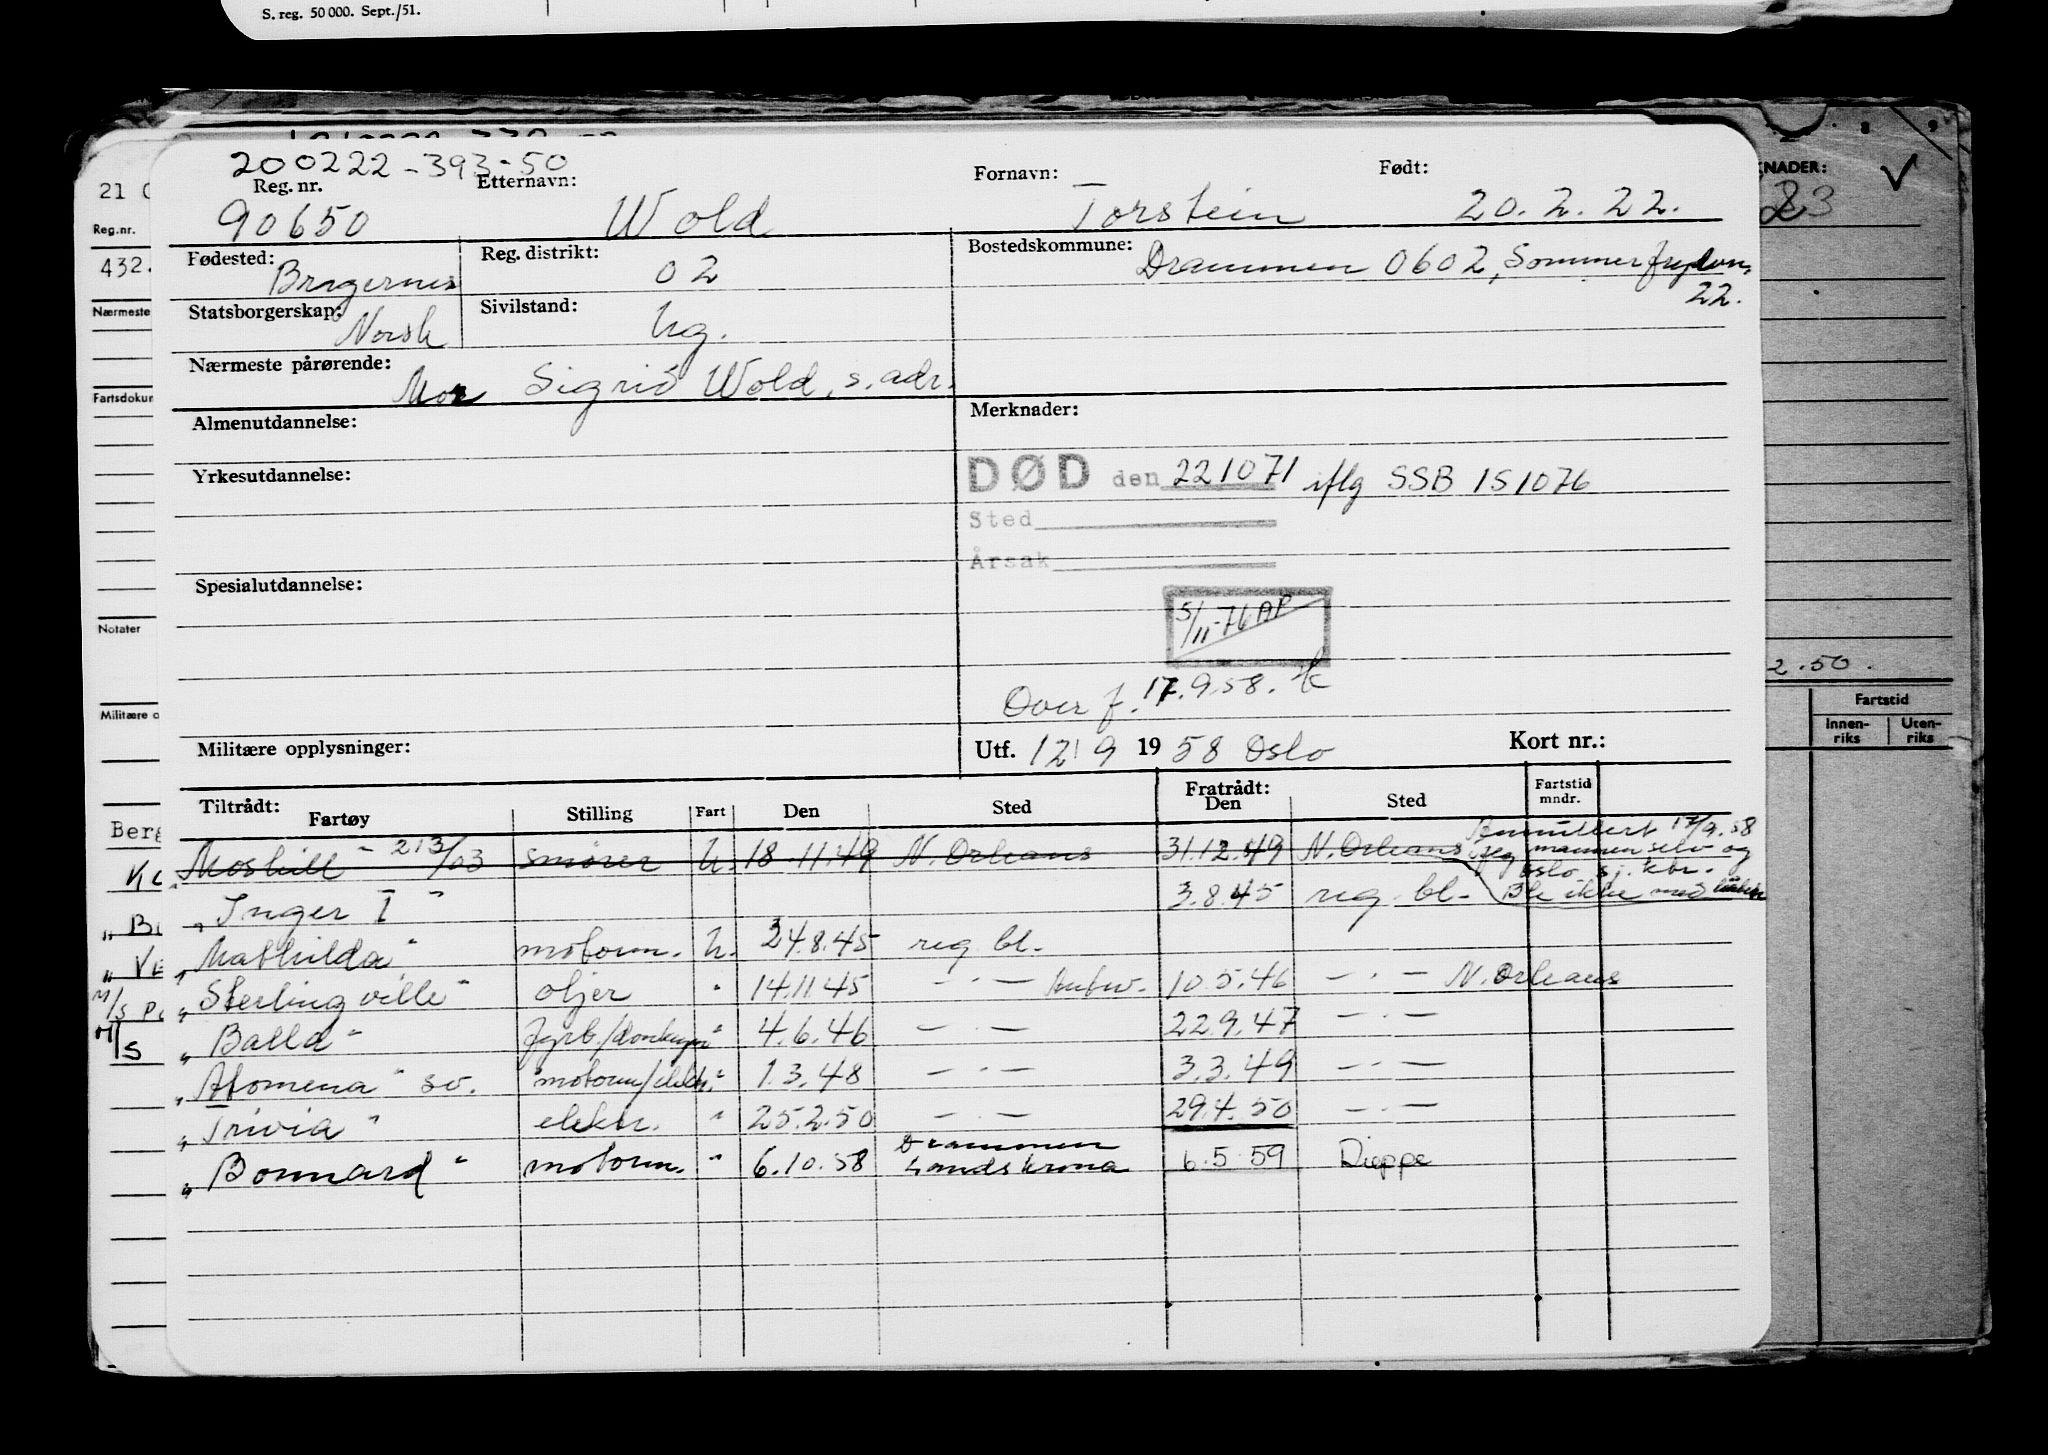 S. reg. 50 000. Sept./51.
200222-393-50
Reg. nr. Etternavn: Fornavn: Født:
90650 Wold Torstein 20.2.22.
Fødested: Reg. distrikt: Bostedskommune:
Bragernes 02 Drammen 0602,
22.
Statsborgerskap: Sivilstand:
Norsk Ug.
Nærmeste pårørende:
Mor Sigrid Wold, s. adr.
Almenutdannelse: Merknader:
Yrkesutdannelse: DØD den 221071 iflg SSB 151076
Sted
Årsak
Spesialutdannelse:
5/11-76 AP
Over f. 17.9.58.
Militære opplysninger: Utf. 12/9 1958 Oslo Kort nr.:
Tiltrådt: Fratrådt: Fartstid
Fartøy Stilling Fart Den Sted Den Sted mndr.
Annullert 17/9.58
Moshill" 213/03 smører U. 18.11.49 N. Orleans 31.12.49 N. Orleans iflg mannen selv og
Oslo sj. ktr.
" Inger I " 3.8.45 reg. bl. Ble ikke med
" Mathilda" motorm. U. 24.8.45 reg. bl.
" Sterlingville" oljer " 14.11.45 — · — Antw. 10.5.46 — · — N. Orleans
" Balla" fyrb./ " 4.6.46 — · — 22.9.47 — · —
" Atomena" sv. motorm/elektr. " 1.3.48 — · — 3.3.49 — · —
" Trivia" elektr. " 25.2.50 — · — 29.4.50 — · —
Drammen
" Bonnard" motorm. " 6.10.58 Landskrona 6.5.59 Dieppe
21
Reg.nr.
432.
Nærmeste
Fartsdokum
Notater
Militære o
Berg
M/S
M/S
KNADER:
23
2.50.
Fartstid
Innen-
riks
Uten-
riks
8 9